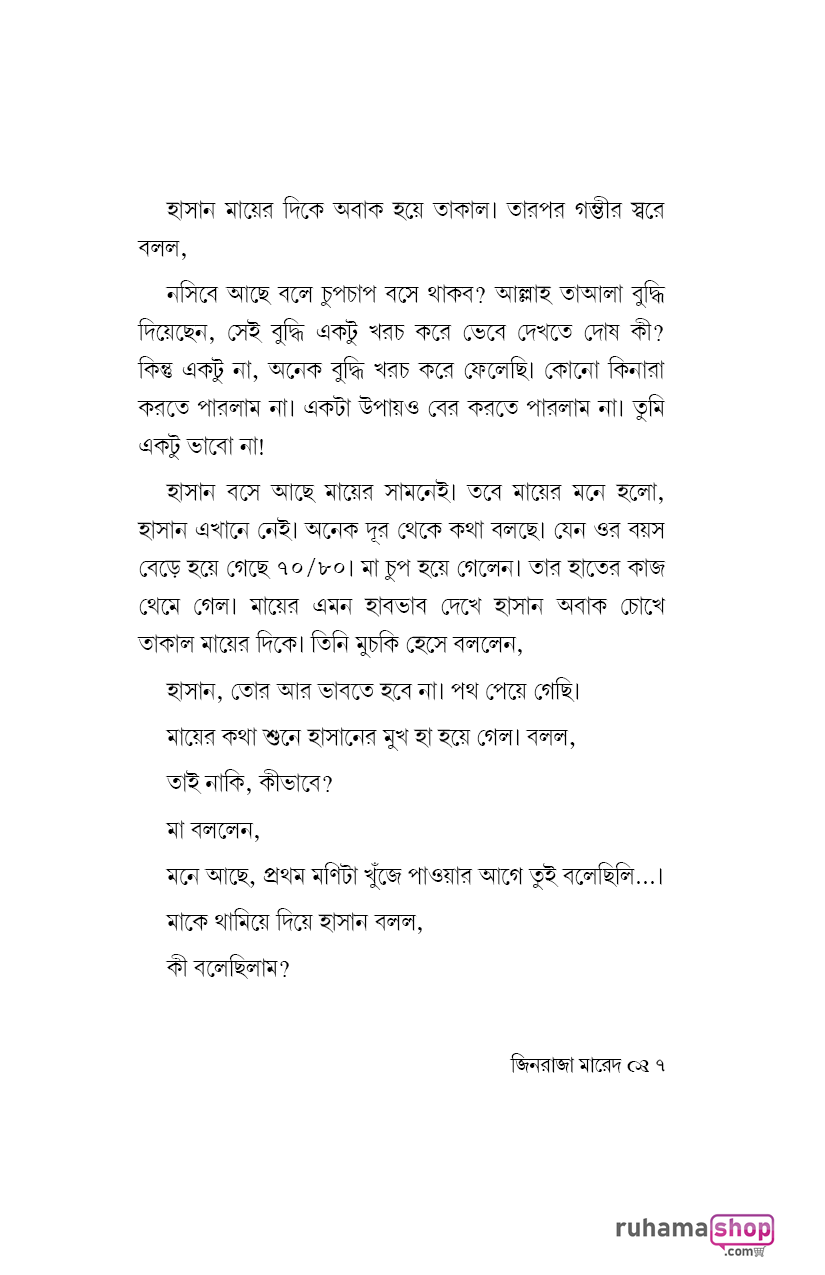 হাসান মায়ের দিকে অবাক হয়ে তাকাল। তারপর গম্ভীর স্বরে
বলল,
নসিবে আছে বলে চুপচাপ বসে থাকব? আল্লাহ তাআলা বুদ্ধি
দিয়েছেন, সেই বুদ্ধি একটু খরচ করে ভেবে দেখতে দোষ কী?
কিন্তু একটু না, অনেক বুদ্ধি খরচ করে ফেলেছি। কোনো কিনারা
করতে পারলাম না। একটা উপায়ও বের করতে পারলাম না। তুমি
একটু ভাবো না!
হাসান বসে আছে মায়ের সামনেই। তবে মায়ের মনে হলো,
হাসান এখানে নেই। অনেক দূর থেকে কথা বলছে। যেন ওর বয়স
বেড়ে হয়ে গেছে ৭০/৮০। মা চুপ হয়ে গেলেন। তার হাতের কাজ
থেমে গেল। মায়ের এমন হাবভাব দেখে হাসান অবাক চোখে
তাকাল মায়ের দিকে। তিনি মুচকি হেসে বললেন,
হাসান, তোর আর ভাবতে হবে না। পথ পেয়ে গেছি।
মায়ের কথা শুনে হাসানের মুখ হা হয়ে গেল। বলল,
তাই নাকি, কীভাবে?
মা বললেন,
মনে আছে, প্রথম মণিটা খুঁজে পাওয়ার আগে তুই বলেছিলি...।
মাকে থামিয়ে দিয়ে হাসান বলল,
কী বলেছিলাম?
জিনরাজা মারেদ ৭
ruhamashop
.com